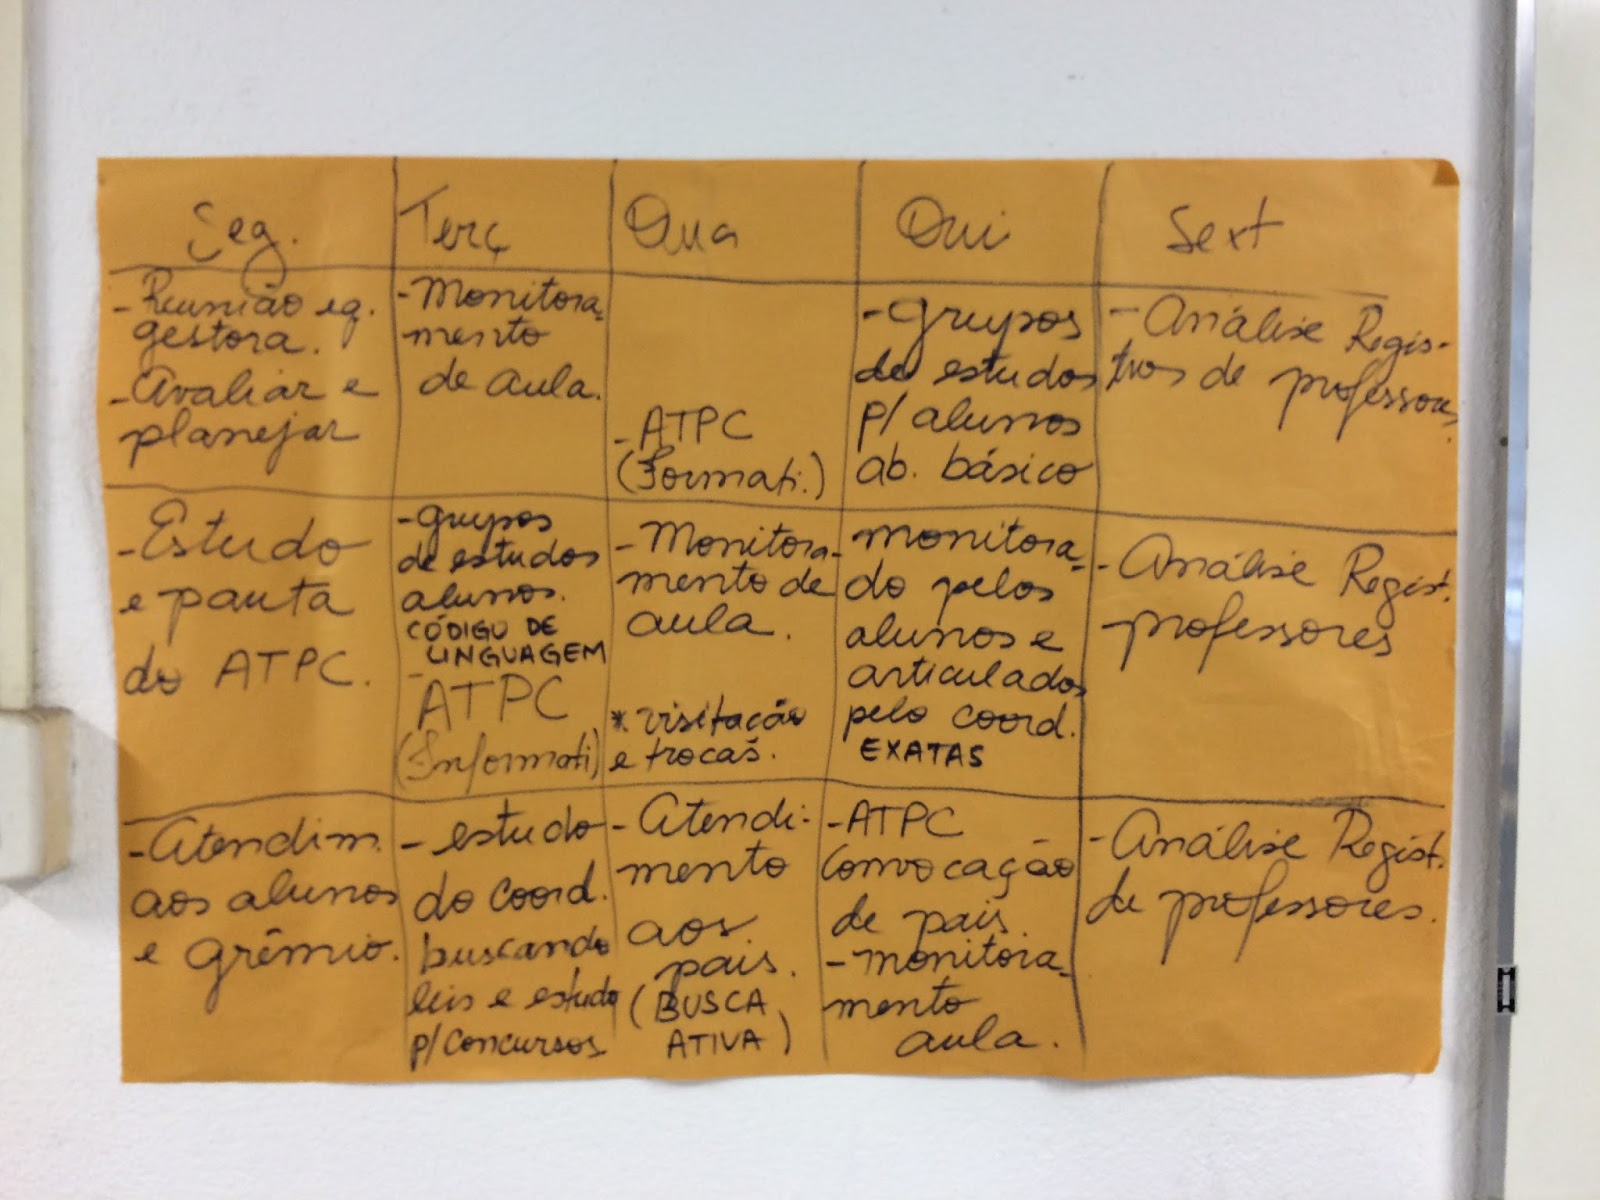 Seg.
Terç
Qua
Qui
Sext
- Reunião eq.
gestora.
- Avaliar e
planejar
- Monitora-
mento
de aula.
- ATPC
(Formati.)
- grupos
de estudos
p/ alunos
ab. básico
- Análise Regis-
tros de professores
- Estudo
e pauta
do ATPC.
- grupos
de estudos
alunos.
CÓDIGO DE
LINGUAGEM
- ATPC
(Informati)
- Monitora-
mento de
aula.
* visitação
e trocas.
monitora-
do pelos
alunos e
articulados
pelo coord.
EXATAS
- Análise Regist.
professores
- Atendim.
aos alunos
e grêmio.
- estudo
do coord.
buscando
leis e estudo
p/ concursos
- Atendi-
mento
aos
pais.
(BUSCA
ATIVA)
- ATPC
Convocação
de pais.
- monitora-
mento
aula.
- Análise Regist.
de professores.